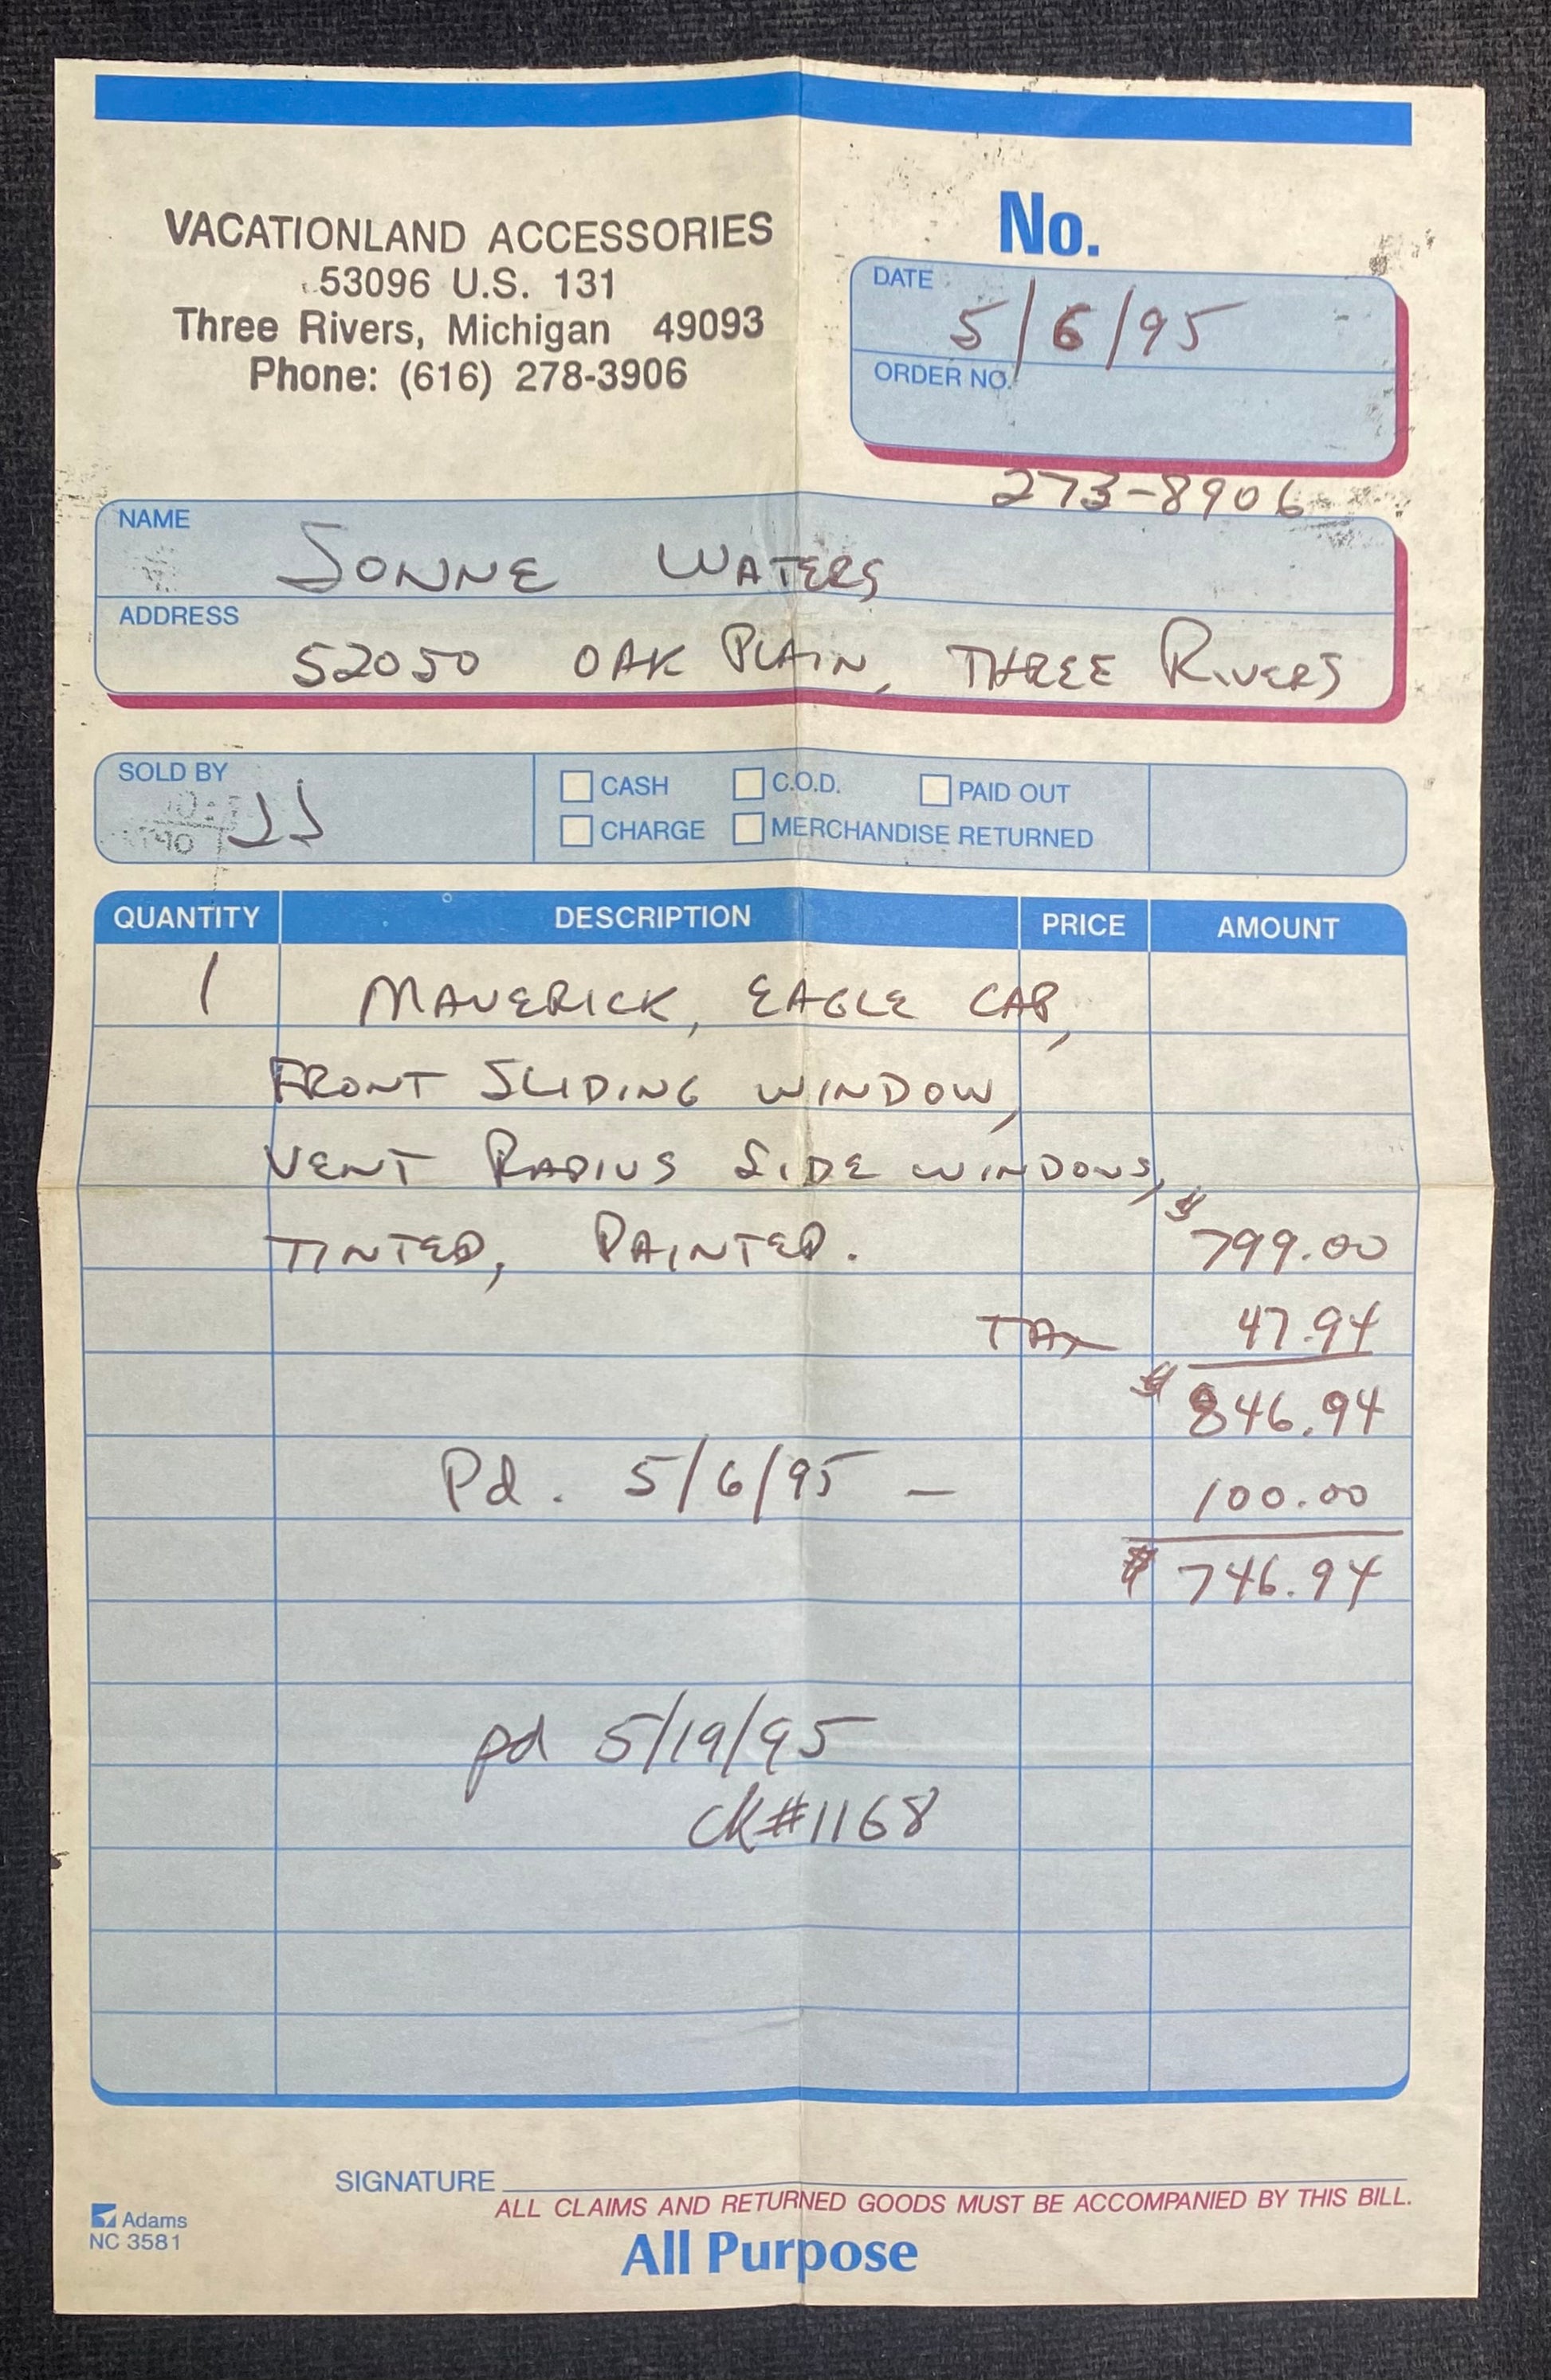 VACATIONLAND ACCESSORIES
53096 U.S. 131
Three Rivers, Michigan 49093
Phone: (616) 278-3906
No.
DATE 5/6/95
ORDER NO.
273-8906
NAME SONNE WATERS
ADDRESS 52050 OAK PLAIN, THREE RIVERS
SOLD BY JJ
CASH C.O.D. PAID OUT
CHARGE MERCHANDISE RETURNED
QUANTITY DESCRIPTION PRICE AMOUNT
1 MAVERICK, EAGLE CAP,
FRONT SLIDING WINDOW,
VENT RADIUS SIDE WINDOWS,
TINTED, PAINTED. $799.00
TAX 47.94
$846.94
Pd. 5/6/95 — 100.00
$746.94
pd 5/19/95
ck#1168
SIGNATURE
ALL CLAIMS AND RETURNED GOODS MUST BE ACCOMPANIED BY THIS BILL.
Adams
NC 3581
All Purpose